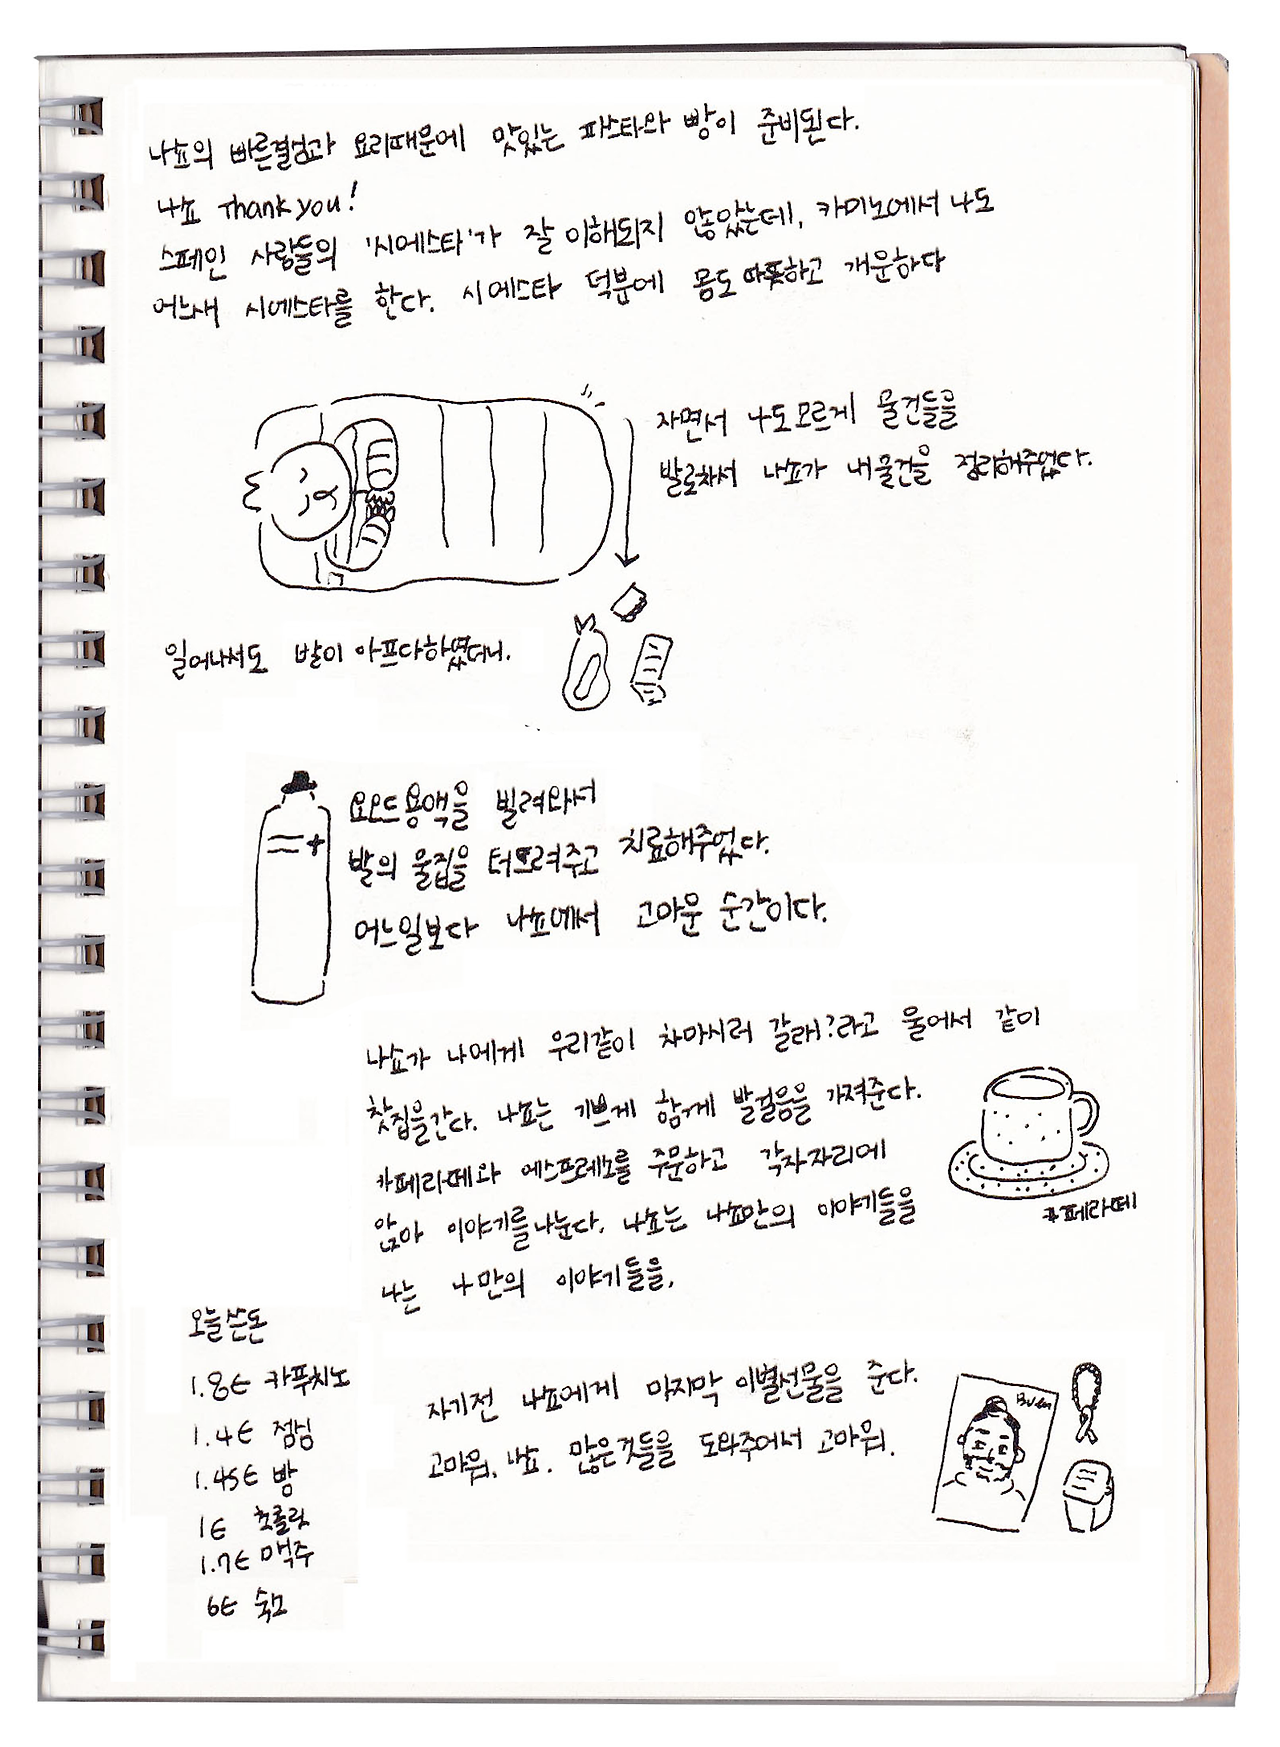 나쵸의 빠른결정과 요리때문에 맛있는 파스타와 빵이 준비된다.
나쵸 Thank you!
스페인 사람들의 '시에스타'가 잘 이해되지 않았는데, 카미노에서 나도
어느새 시에스타를 한다. 시에스타 덕분에 몸도 따뜻하고 개운하다
자면서 나도모르게 물건들을
발로차서 나쵸가 내물건을 정리해주었다.
일어나서도 발이 아프다하였더니.
요오드용액을 빌려와서
발의 물집을 터뜨려주고 치료해주었다.
어느일보다 나쵸에서 고마운 순간이다.
나쵸가 나에게 우리같이 차마시러 갈래?라고 물어서 같이
찻집을간다. 나쵸는 기쁘게 함께 발걸음을 가져준다.
카페라떼와 에스프레소를 주문하고 각자자리에
앉아 이야기를나눈다. 나쵸는 나쵸만의 이야기들을
나는 나만의 이야기들을.
카페라떼
오늘쓴돈
1.8€ 카푸치노
1.4€ 점심
1.45€ 빵
1€ 초콜릿
1.7€ 맥주
6€ 숙소
자기전 나쵸에게 마지막 이별선물을 준다.
고마워, 나쵸. 많은것들을 도와주어서 고마워.
Buen